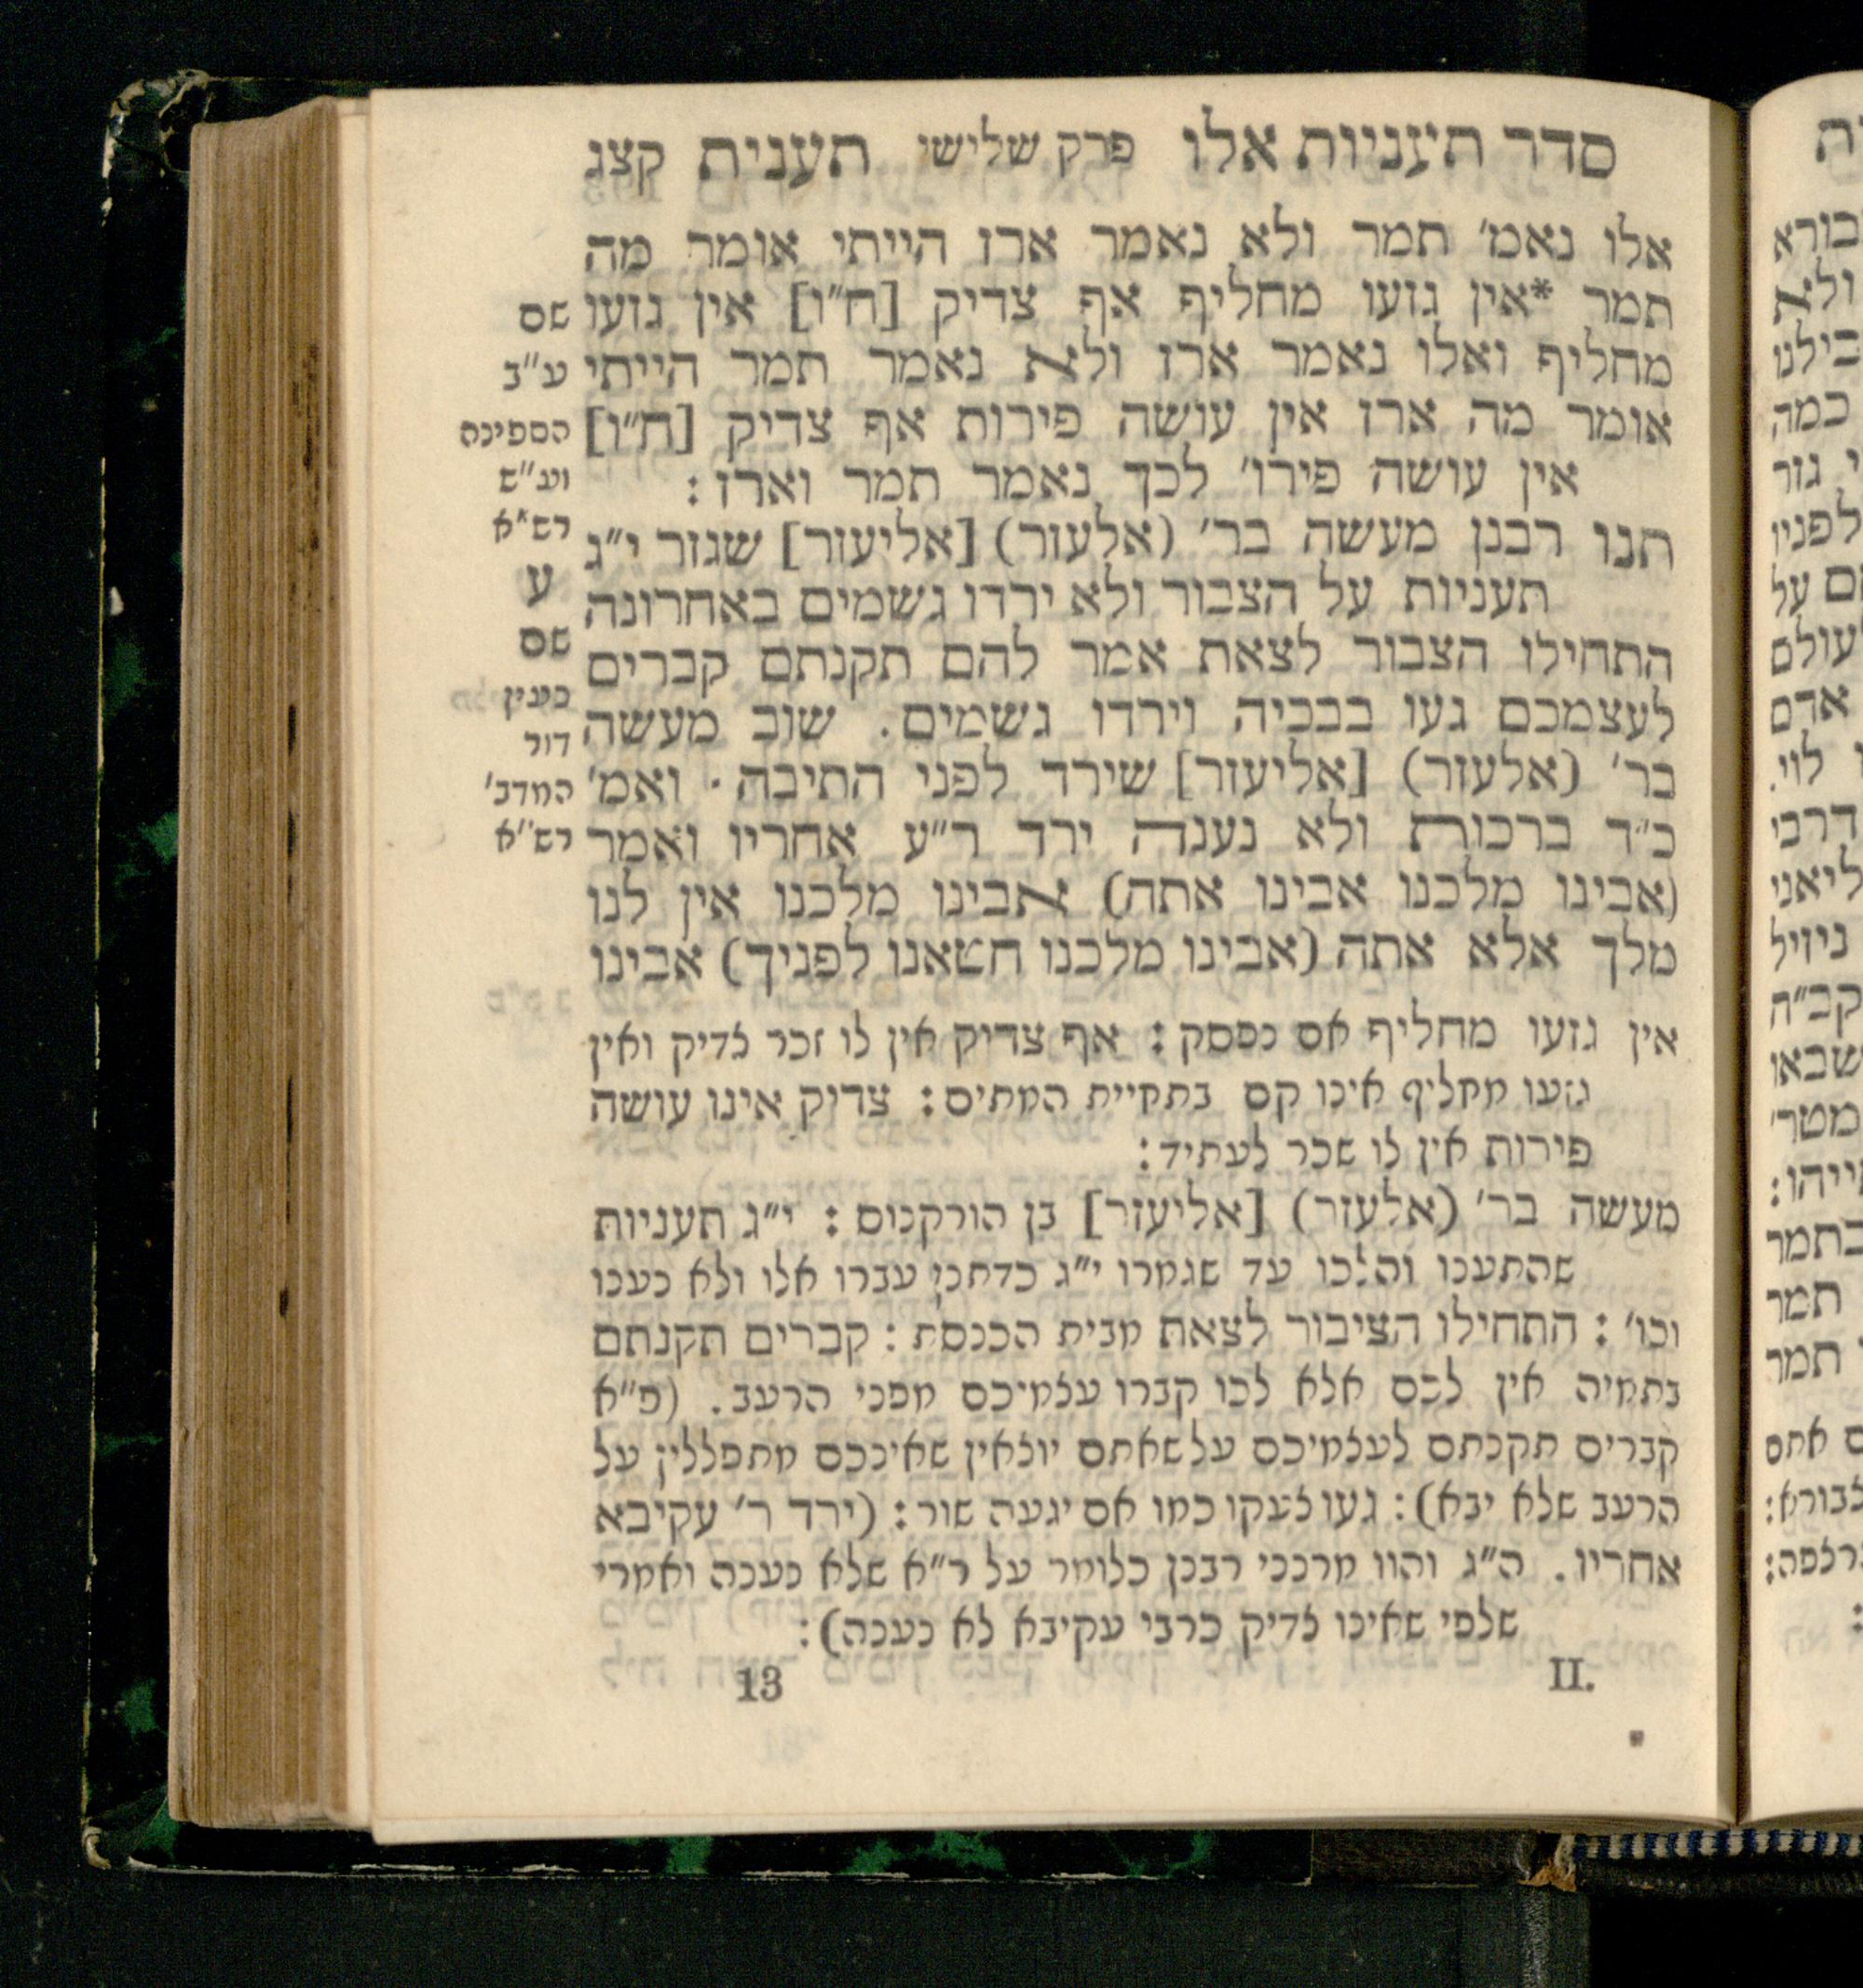 סדר תעניות אלו פרק שלישי תענית קצג
אלו נאמ׳ תמר ולא נאמר ארז הייתי אומר מה
תמר *אין גזעו מחליף אף צדיק [ח״ו] אין גזעו
מחליף ואלו נאמר ארז ולא נאמר תמר הייתי
אומר מה ארז אין עושה פירות אף צדיק [ח״ו]
אין עושה פירו׳ לכך נאמר תמר וארז :
תנו רבנן מעשה בר׳ (אלעזר) [אליעזר] שגזר י״ג
תעניות על הצבור ולא ירדו גשמים באחרונה
התחילו הצבור לצאת אמר להם תקנתם קברים
לעצמכם געו בבכיה וירדו גשמים. שוב מעשה
בר׳ (אלעזר) [אליעזר] שירד לפני התיבה. ואמ׳
כ״ד ברכות ולא נענה ירד ר״ע אחריו ואמר
(אבינו מלכנו אבינו אתה) אבינו מלכנו אין לנו
מלך אלא אתה (אבינו מלכנו חטאנו לפניך) אבינו
שם
ע״ב
הספינה
וע״ש
רש״א
ע
שם
כעין
דור
המדב׳
רש״א
אין גזעו מחליף אם נפסק : אף צדיק אין לו זכר צדיק ואין
גזעו מחליף אינו קם בתחיית המתים : צדיק אינו עושה
פירות אין לו שכר לעתיד :
מעשה בר׳ (אלעזר) [אליעזר] בן הורקנוס : י״ג תעניות
שהתענו והלכו עד שגמרו י״ג כדתנן עברו אלו ולא נענו
וכו׳ : התחילו הציבור לצאת מבית הכנסת : קברים תקנתם
בתמיה אין לכם אלא לכו קברו עצמיכם מפני הרעב. (פ״א
קברים תקנתם לעצמיכם על שאתם יוצאין שאינכם מתפללין על
הרעב שלא יבא) : געו צעקו כמו אם יגעה שור : (ירד ר׳ עקיבא
אחריו. ה״ג והוו מרנני רבנן כלומר על ר״א שלא נענה ואמרי
שלפי שאינו צדיק כרבי עקיבא לא נענה) :
II. 13